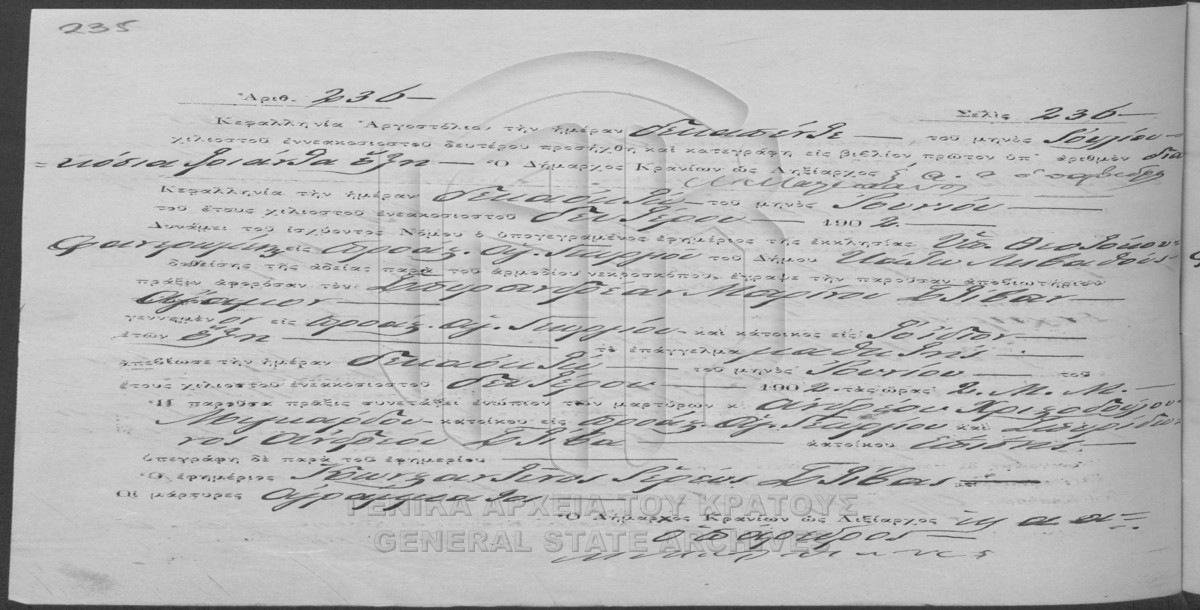 235
Ἀριθ. 236
Σελὶς 236
Κεφαλληνία Ἀργοστόλιον τὴν ἡμέραν δεκαπέντε τοῦ μηνὸς Ἰουλίου
χιλιοστοῦ ἐννεακοσιοστοῦ δευτέρου προσήχθη καὶ κατεγράφη εἰς βιβλίον πρῶτον ὑπ' ἀριθμὸν δια
=κόσια τριάντα ἕξη Ὁ Δήμαρχος Κρανίων ὡς Ληξίαρχος
Κεφαλληνία τὴν ἡμέραν δεκαοκτώ τοῦ μηνὸς Ἰουνίου
τοῦ ἔτους χιλιοστοῦ ἐνεακοσιοστοῦ δευτέρου 1902
Δυνάμει τοῦ ἰσχύοντος Νόμου ὁ ὑπογεγραμένος ἐφημέριος τῆς ἐκκλησίας Ὑπ. Θεοτόκου
Φανερωμένης εἰς Προάς. Ἁγ. Γεωργίου τοῦ Δήμου Λιβαθοῦς
δοθείσης τῆς ἀδείας παρὰ τοῦ ἁρμοδίου νεκροσκόπου, ἔγραψε τὴν παροῦσαν ἀποβιωτήριον
πρᾶξιν ἀφορῶσαν τὸν Μαρίνου Στίβαν
Ἄγαμον
γεννημέν ον εἰς Προάς. Ἁγ. Γεωργίου καὶ κάτοικος εἰς
ἐτῶν ἕξη τὸ ἐπάγγελμα μαθητής
ἀπεβίωσε τὴν ἡμέραν δεκαοκτώ τοῦ μηνὸς Ἰουνίου τοῦ
ἔτους χιλιοστοῦ ἐνεακοσιοστοῦ δευτέρου 1902. τὰς ὥρας 2. Μ. Μ.
Ἡ παροῦσα πρᾶξις συνετάθει ἐνώπιον τῶν μαρτύρων κ.
κατοίκου εἰς Προάς. Ἁγ. Γεωργίου καὶ Σπυρίδω
νος Ἀνδρέου Στίβα κατοίκου
ὑπεγράφη δὲ παρὰ τοῦ ἐφημερίου
Ὁ ἐφημέριος Κωνσταντῖνος Ἱερεὺς Στίβας
Οἱ μάρτυρες ἀγράμματοι
Ὁ Δήμαρχος Κρανίων ὡς Λιξίαρχος
ὁ πάρεδρος
ΓΕΝΙΚΑ ΑΡΧΕΙΑ ΤΟΥ ΚΡΑΤΟΥΣ
GENERAL STATE ARCHIVES